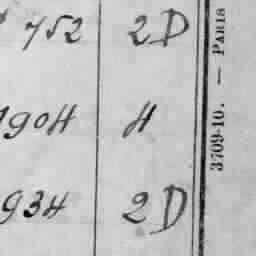 752 2D
904 4
934 2D
3709-10. — PARIS